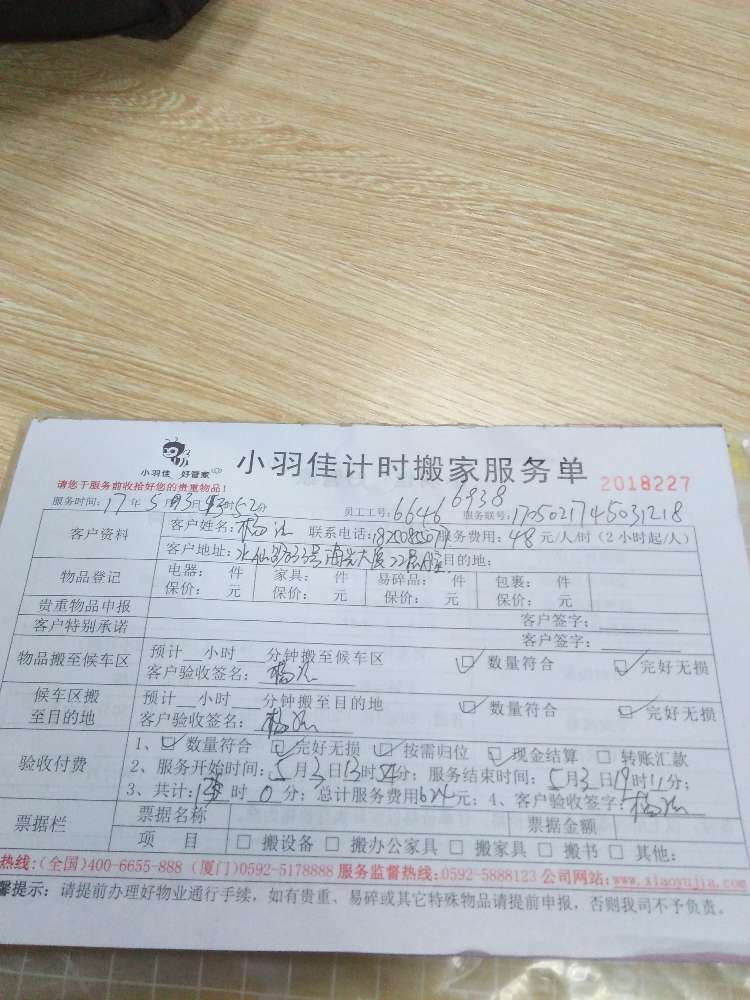 小羽佳 好管家
小羽佳计时搬家服务单 2018227
请您于服务前收拾好您的贵重物品!
服务时间:17年5月3日13时52分 员工工号:6646 6938 服务联号:1705021745031218
客户资料 客户姓名: 联系电话: 服务费用:48元/人/时(2小时起/人)
客户地址: 目的地:
物品登记 电器: 件 家具: 件 易碎品: 件 包裹: 件
保价: 元 保价: 元 保价: 元 保价: 元
贵重物品申报 客户签字:
客户特别承诺 客户签字:
物品搬至候车区 预计 小时 分钟搬至候车区 数量符合 完好无损
客户验收签名:
候车区搬至目的地 预计 小时 分钟搬至目的地 数量符合 完好无损
客户验收签名:
验收付费 1、数量符合 完好无损 按需归位 现金结算 转账汇款
2、服务开始时间:5月3日13时54分;服务结束时间:5月3日19时11分;
3、共计: 时0分;总计服务费用624元;4、客户验收签字:
票据栏 票据名称 票据金额
项 目 搬设备 搬办公家具 搬家具 搬书 其他:
热线:(全国)400-6655-888 (厦门)0592-5178888 服务监督热线:0592-5888123 公司网站:www.xiaoyujia.com
馨提示:请提前办理好物业通行手续,如有贵重、易碎或其它特殊物品请提前申报,否则我司不予负责。